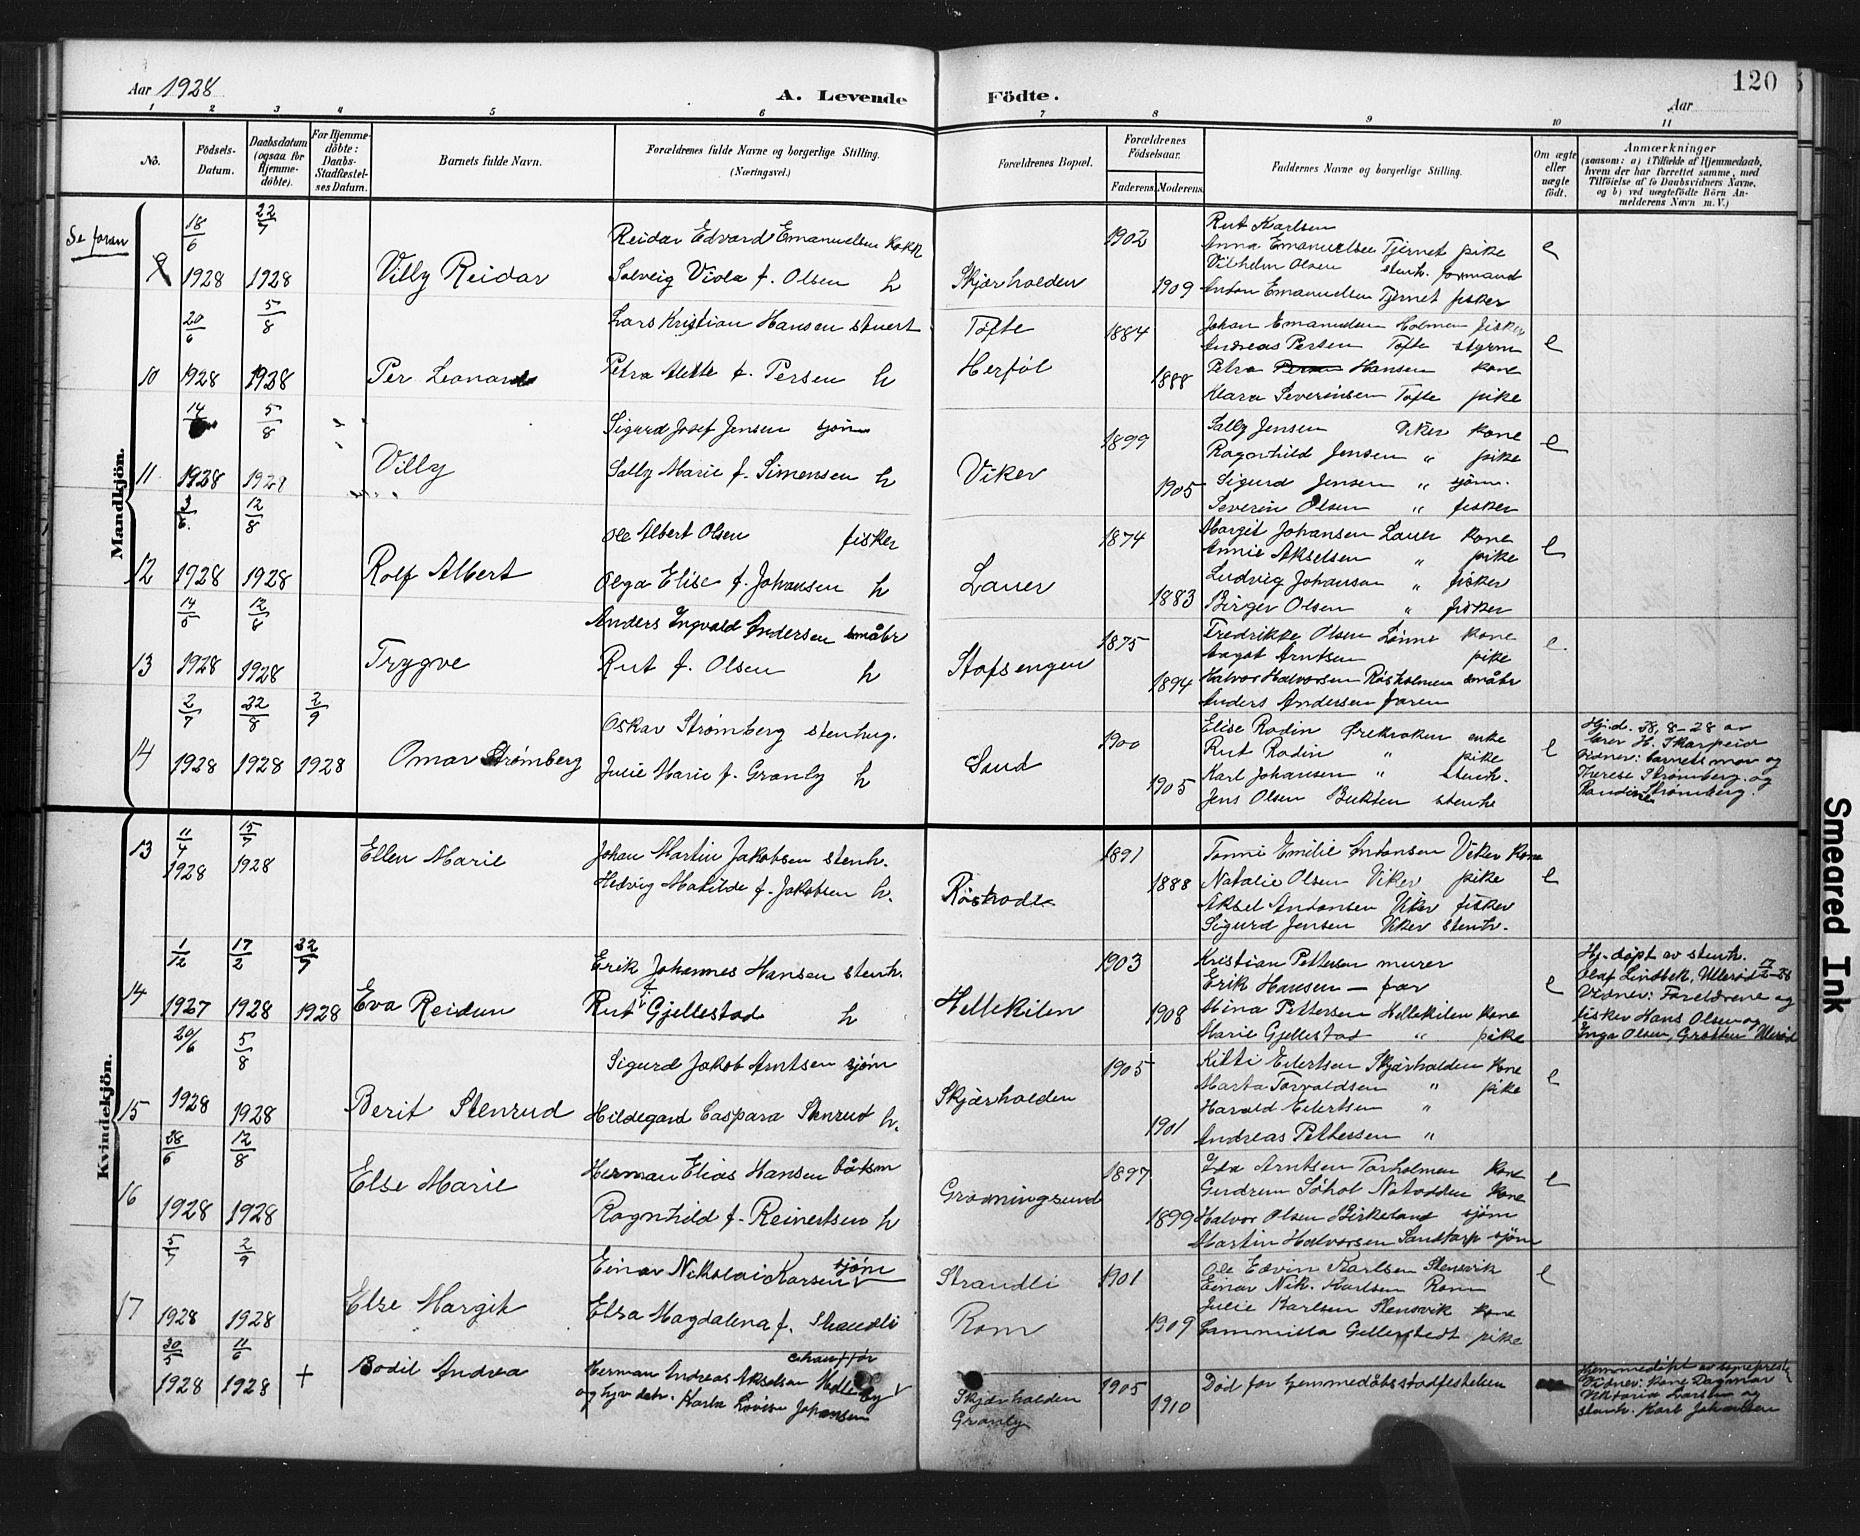 Aar 1928
A. Levende
Födte.
120
Aar
1 2 3 4 5 6 7 8 9 10 11
No.
Födsels-Datum.
Daabsdatum (ogsaa for Hjemmedöbte).
For Hjemmedöbte: Daabs-Stadfæstelses Datum.
Barnets fulde Navn.
Forældrenes fulde Navne og borgerlige Stilling. (Næringsvei.)
Forældrenes Bopæl.
Forældrenes Födselsaar.
Faderens. Moderens.
Faddernes Navne og borgerlige Stilling.
Om ægte eller uægte födt.
Anmærkninger
(saasom: a) i Tilfælde af Hjemmedaab, hvem der har forrettet samme, med Tilföielse af to Daabsvidners Navne, og b) ved uegtefödte Börn Anmelderens Navn m. V.)
Mandkjön.
Se foran
9
18/6 1928
22/7 1928
Villy Reidar
Reidar Edvard Emanuelsen kokk
Solveig Viola f. Olsen h
Skjærholden
1902
1909
Rut Karlsen
Anna Emanuelsen Tjernet pike
Vilhelm Olsen stenh. formand
Anton Emanuelsen Tjernet fisker
e
10
20/6 1928
5/8 1928
Per Leonard
Lars Kristian Hansen stuert
Petra Alette f. Persen h
Tofte
Herføl
1884
1888
Johan Emanuelsen Holmen fisker
Andreas Persen Tofte styrm
Petra Hansen kone
Klara Severinsen Tofte pike
e
11
14/ 1928
5/8 1928
Villy
Sigurd Josef Jensen sjøm
Sally Marie f. Simensen h
Viker
1899
1905
Sally Jensen Viker kone
Ragnhild Jensen " pike
Sigurd Jensen " sjøm.
Severin Olsen " fisker
e
12
3/6 1928
12/8 1928
Rolf Albert
Ole Albert Olsen fisker
Olga Elise f. Johansen h
Lauer
1874
1883
Margit Johansen Lauer kone
Annie Akselsen " pike
Ludvig Johansen " fisker
Birger Olsen " fisker
e
13
14/5 1928
12/8 1928
Trygve
Anders Ingvald Andersen småbr
Rut f. Olsen h
Stafsengen
1875
1894
Fredrikke Olsen Lønne kone
Aagot Arntsen pike
Halvor Halvorsen Røsholmen småbr
Anders Andersen faren
e.
14
2/7 1928
22/8 1928
2/9 1928
Omar Strømberg
Oskar Strømberg stenhug.
Julie Marie f. Granly h
Sand
1900
1905
Elise Rodin Ørekroken enke
Rut Rodin " pike
Karl Johansen " stenh.
Jens Olsen Bukten stenh
e
Hj.d. 8-28 av
lærer H. Skarpeid
Vidner: barnets mor og
Therese Strømberg og
Randine Strømberg.
Kvindekjön.
13
11/4 1928
15/7 1928
Ellen Marie
Johan Martin Jakobsen stenh.
Hedvig Matilde f. Jakobsen h.
1891
1888
Tonni Emilie Antonsen Viker kone
Natalie Olsen Viker pike
Aksel Antonsen Viker fisker
Sigurd Jensen Viker stenh.
e
14
1/12 1927
17/2 1928
22/7 1928
Eva Reidun
Erik Johannes Hansen stenh.
Rut f. Gjellestad h
Hellekilen
1903
1908
Kristian Pettersen murer
Erik Hansen – far
Mina Pettersen Hellekilen kone
Marie Gjellestad " pike
e
Hj-døpt av stenh.
Olaf Lindbek, Ullerød 17/2-28
Vidner: Foreldrene og
fisker Hans Olsen og
Inga Olsen, Grotten Ullerød
15
20/6 1928
5/8 1928
Berit Stenrud
Sigurd Jakob Arntsen sjøm
Hildegard Caspara Stenrud h.
Skjærholden
1905
1901
Kitti Eilertsen Skjærholden kone
Marta Torvaldsen " pike
Harald Eilertsen "
Andreas Pettersen "
e
16
28/6 1928
12/8 1928
Else Marie
Herman Elias Hansen båtsm
Ragnhild f. Reinertsen h
Grønningsund
1897
1899
Ida Arntsen Torholmen kone
Gudrun Søhol Notodden kone
Halvor Olsen Birkeland sjøm
Martin Halvorsen Sandtorp sjøm
e
17
5/7 1928
2/9 1928
Else Margit
Einar Nikolai Karsen sjøm
Elsa Magdalena f. Strandli
Strandli
Rom
1901
1909
Ole Edvin Karlsen Stensvik
Einar Nik. Karlsen Rom
Julie Karlsen Stensvik kone
Cammilla Gellerstedt pike
e
30/5 1928
11/6 1928
+
Bodil Andrea
Herman Andreas Akselsen chauffør
og hjv. detr. Karla Lovise Johansen
Skjærholden
Granly
1905
1910
Død før hjemmedåbsstadfestelsen
Hjemmedøpt av sogneprest
Vidner: kone Dagmar
Viktoria Larsen og
stenh. Karl Johansen
Smeared Ink